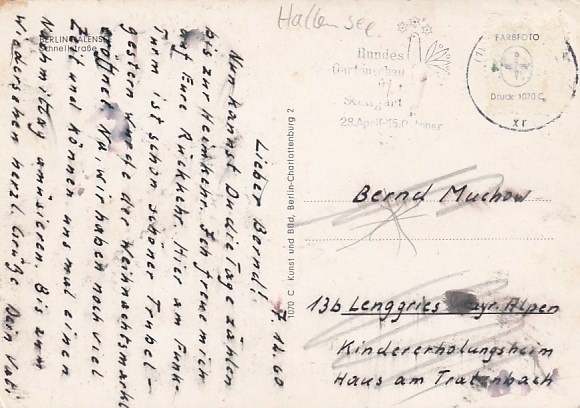 Hallensee
BERLIN-HALENSEE
Schnellstraße
Bundes
Gartenschau
Stuttgart
28.April-15.Oktober
FARBFOTO
Druck 1070 C
xr
7.12.60
Lieber Bernd!
Nun kannst Du die Tage zählen
bis zur Heimkehr. Ich freue mich
auf Eure Rückkehr. Hier am Funk-
Turm ist schon schöner Trubel –
gestern wurde der Weihnachtsmarkt
eröffnet. Na, wir haben noch viel
Zeit und können uns mal einen
Nachmittag amüsieren. Bis zum
Wiedersehen herzl. Grüße Dein Vati
1070 C Kunst und Bild, Berlin-Charlottenburg 2
Bernd Muchow
13b Lenggries Bayr. Alpen
Kindererholungsheim
Haus am Tratzenbach